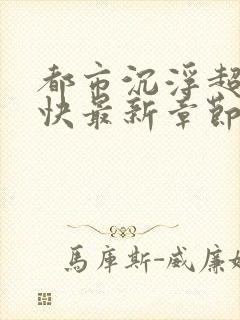 都市沉浮超
快最新章節
馬庫斯-威廉